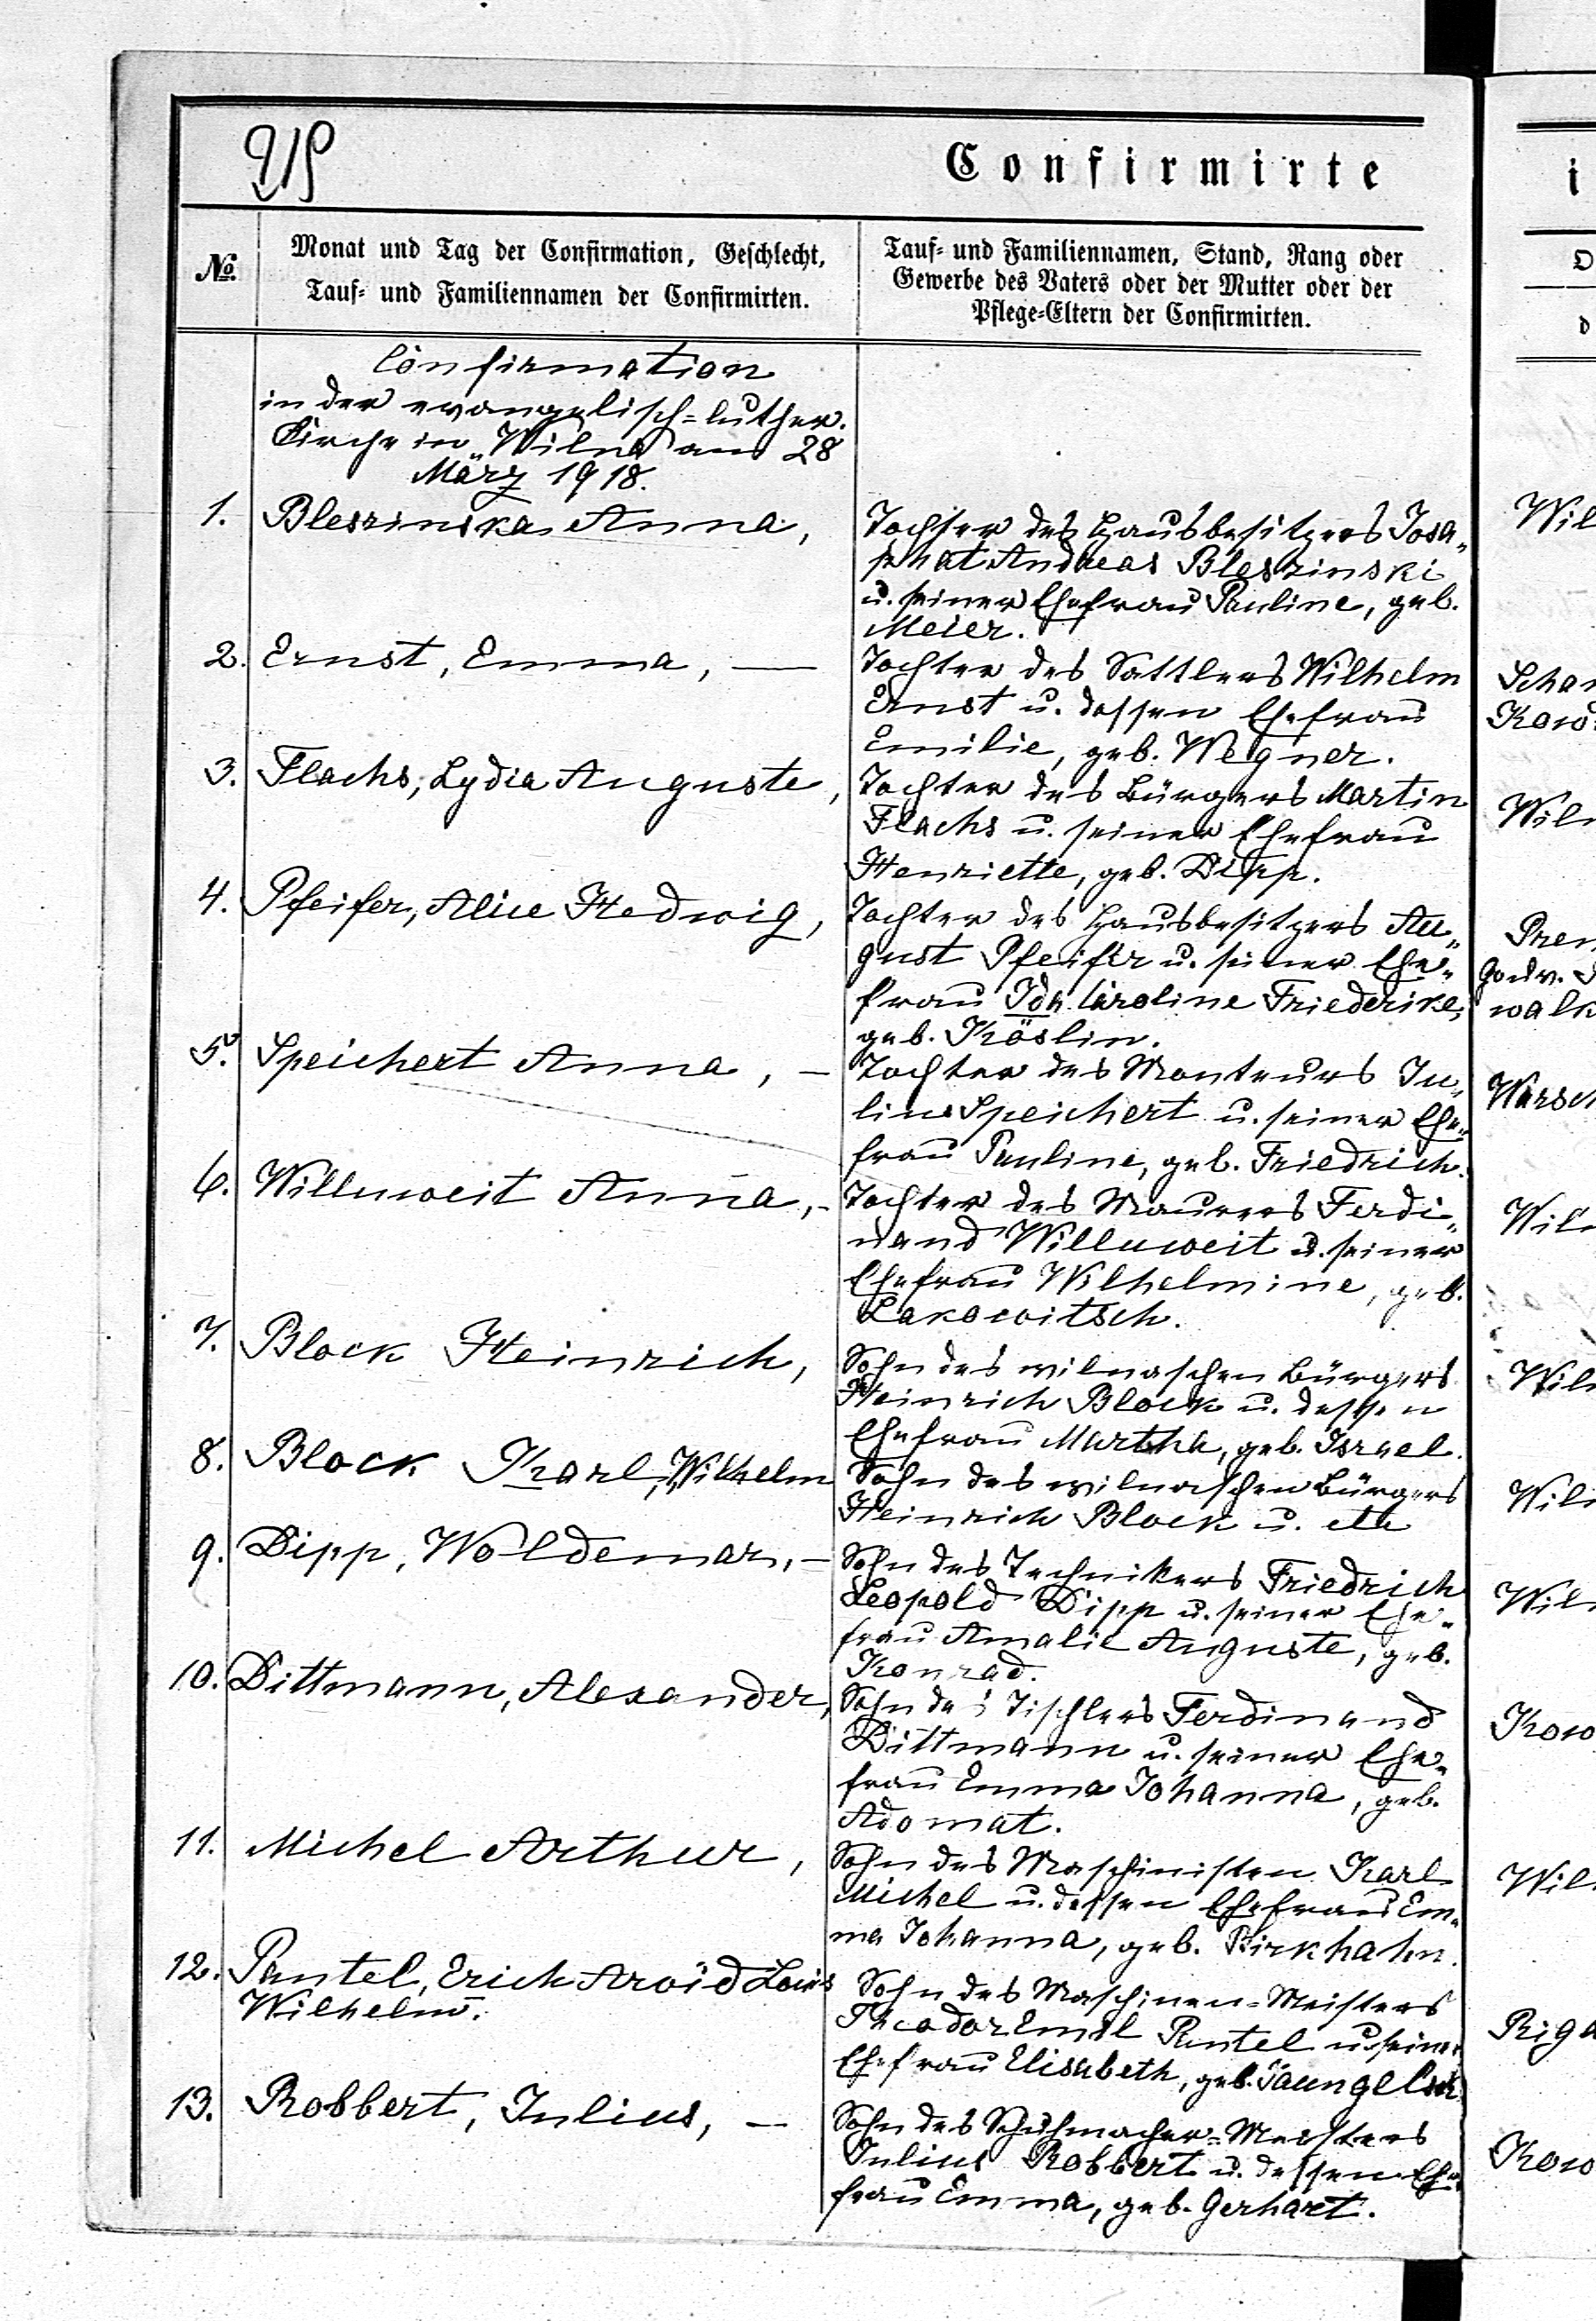 Confirmirte
i
№.
Monat und Tag der Confirmation, Geschlecht,
Tauf- und Familiennamen der Confirmirten.
Tauf- und Familiennamen, Stand, Rang oder
Gewerbe des Vaters oder der Mutter oder der
Pflege-Eltern der Confirmirten.
Confirmation
in der evangelisch-luther.
Kirche in Wilna am 28
März 1918.
1. Bleszinska Anna,
Tochter des Hausbesitzers Josa-
phat Andreas Bleszinski
u. seiner Ehefrau Pauline, geb.
Meier.
Wil
2. Ernst, Emma, —
Tochter des Sattlers Wilhelm
Ernst u. dessen Ehefrau
Emilie, geb. Wegner.
Kow
3. Flachs, Lydia Auguste,
Tochter des Bürgers Martin
Flachs u. seiner Ehefrau
Henriette, geb. Dipp.
Wiln
4. Pfeifer, Alice Hedwig,
Tochter des Hausbesitzers Au-
gust Pfeifer u. seiner Ehe-
frau Ida Caroline Friederike,
geb. Köslin.
walk
5. Speichert Anna, —
Tochter des Monteurs Ju-
lius Speichert u. seiner Ehe-
frau Pauline, geb. Friedrich.
Warsch
6. Willuweit Anna, -
Tochter des Maurers Ferdi-
nand Willuweit u. seiner
Ehefrau Wilhelmine, geb.
Lakowitsch.
Wiln
7. Block Heinrich,
Sohn des wilnaschen Bürgers
Heinrich Block u. dessen
Ehefrau Martha, geb. Israel.
Wiln
8. Block Karl, Wilhelm
Sohn des wilnaschen Bürgers
Heinrich Block u. etc
Wiln
9. Dipp, Woldemar, —
Sohn des Technikers Friedrich
Leopold Dipp u. seiner Ehe-
frau Amalie Auguste, geb.
Konrad.
Wiln
10. Dittmann, Alexander,
Sohn des Tischlers Ferdinand
Dittmann u. seiner Ehe-
frau Emma Johanna, geb.
Adomat.
Kow
11. Michel Arthur,
Sohn des Maschinisten Karl
Michel u. dessen Ehefrau Em-
ma Johanna, geb. Birkhahn.
Wil
12. Pantel, Erich Arvid Louis
Wilhelm.
Sohn des Maschinen-Meisters
Theodor Emil Pantel u. seiner
Ehefrau Elisabeth, geb.
Riga
13. Robbert, Julius, —
Sohn des Schuhmacher-Meisters
Julius Robbert u. dessen Ehe-
frau Emma, geb. Gerhart.
Kow